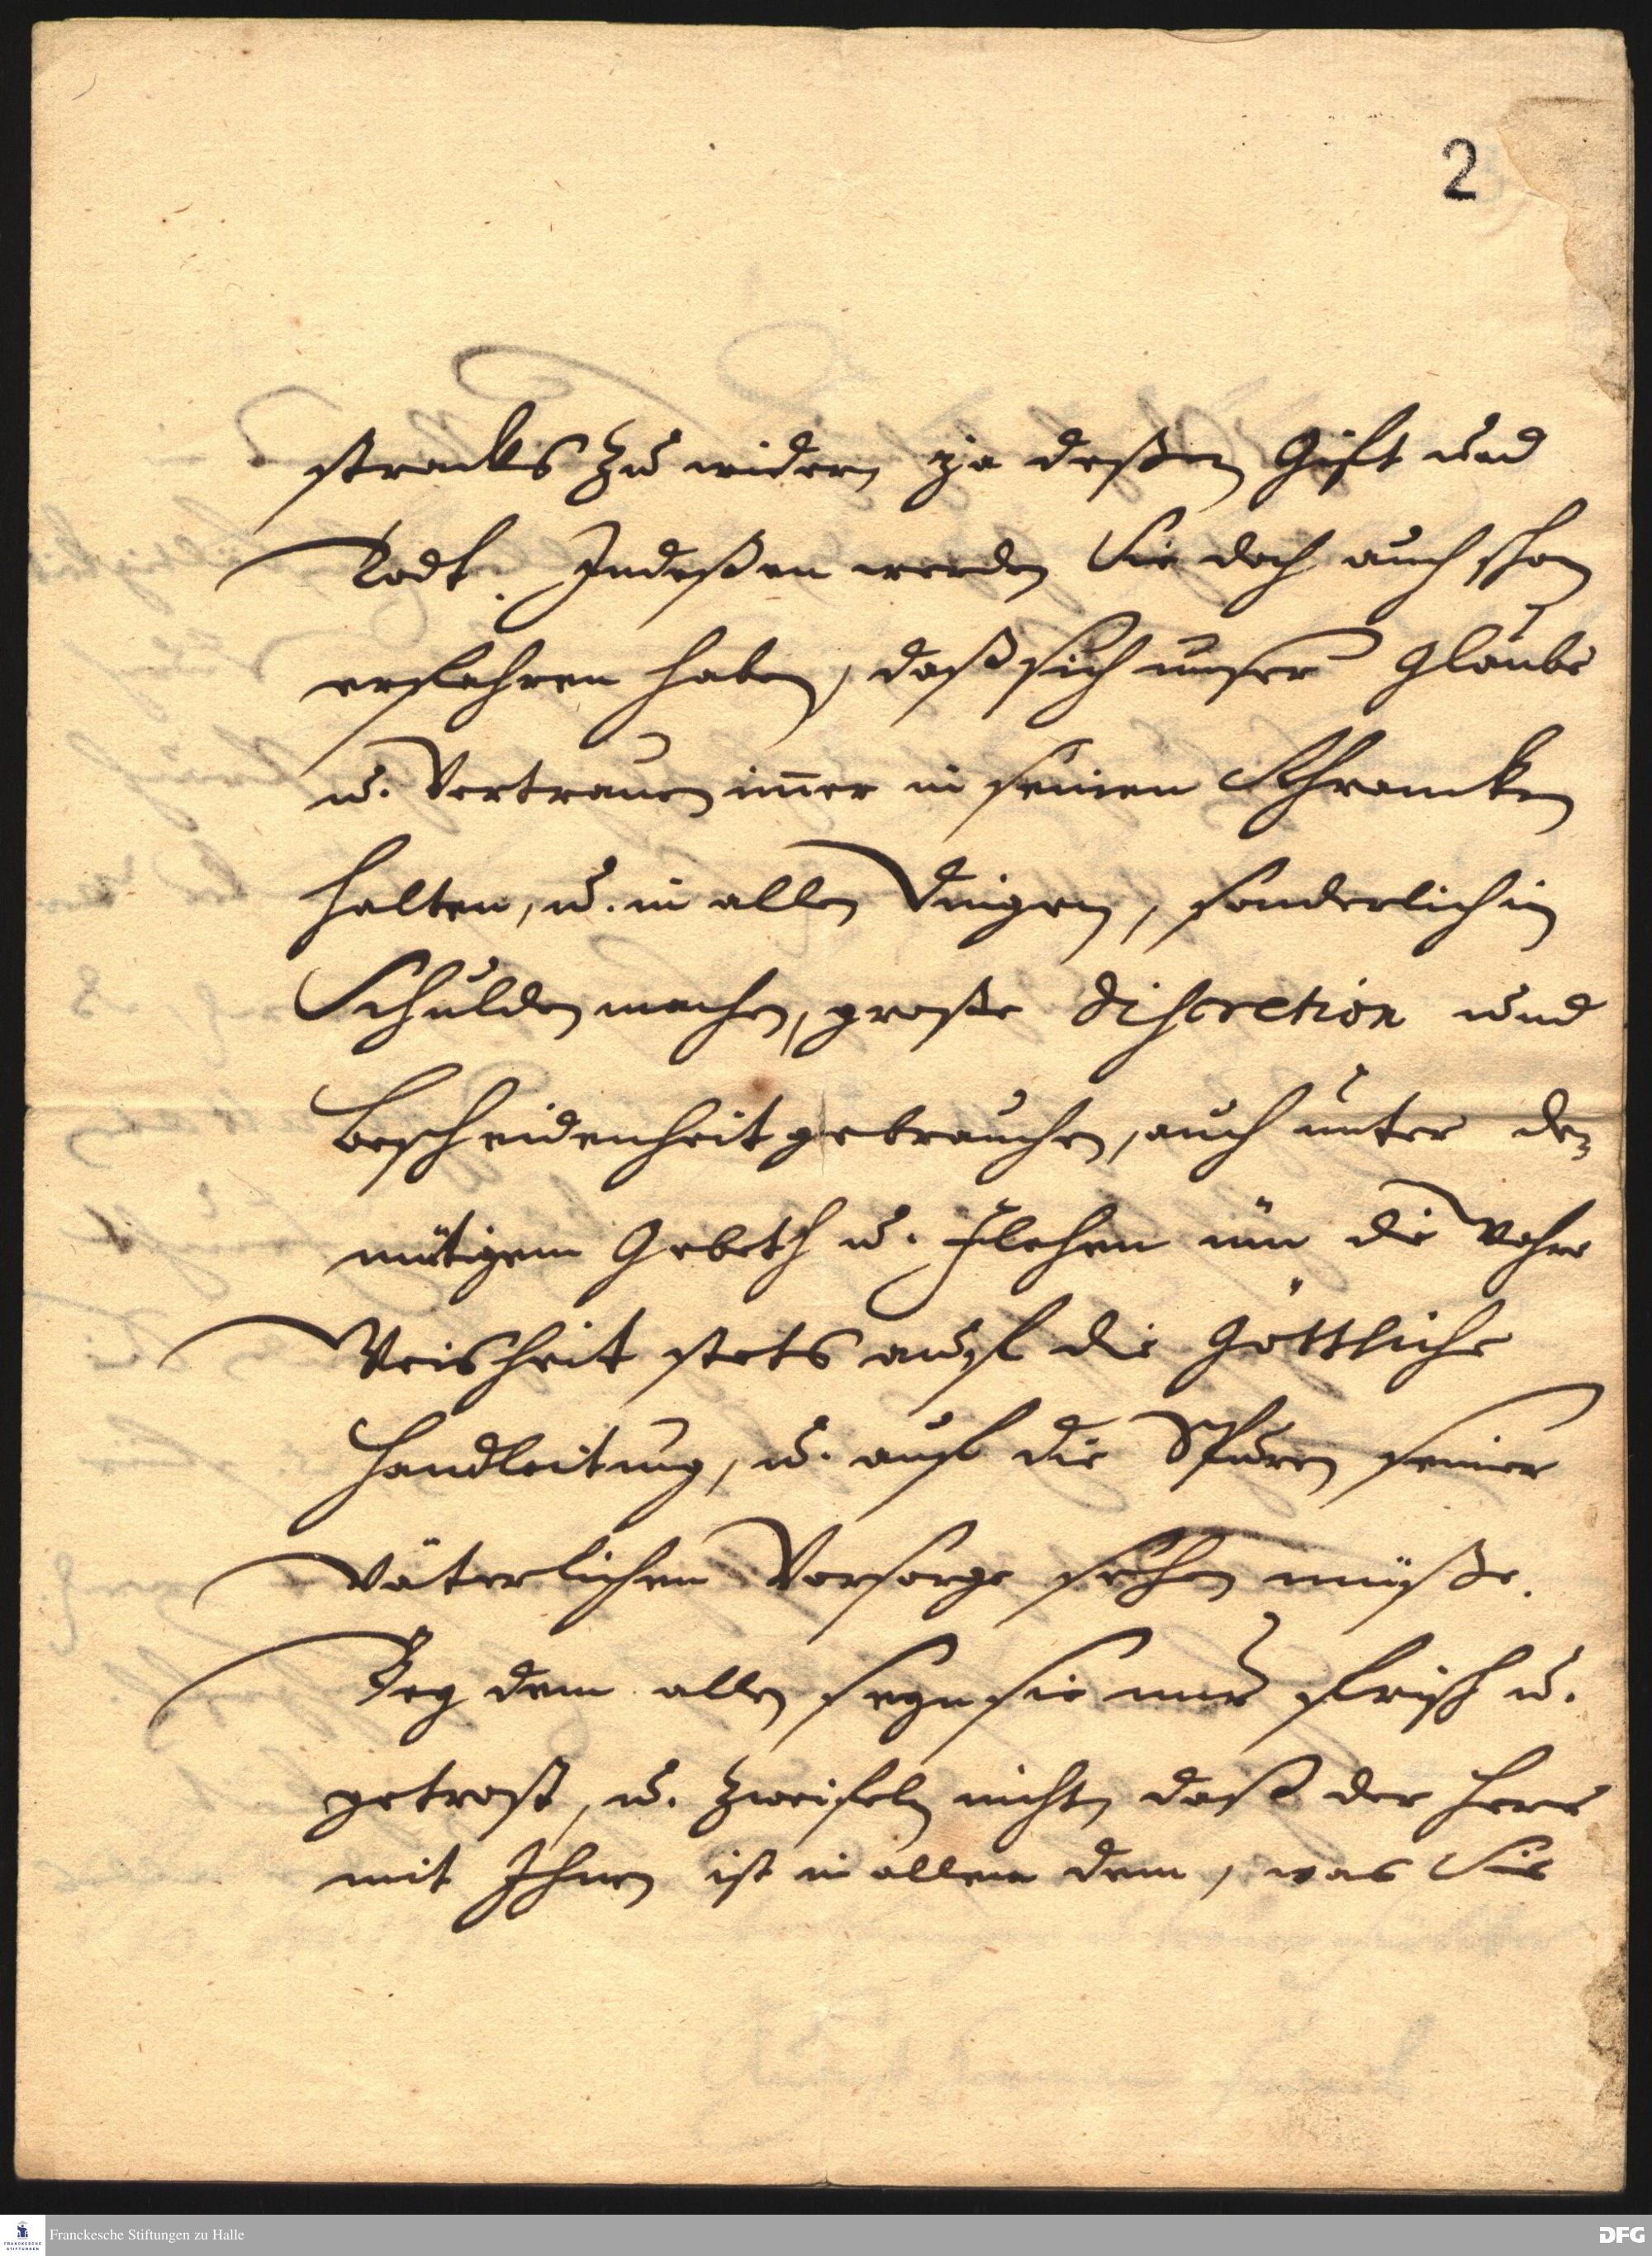 2
stracks zu widern ja deßen Gifft und
Todt. Indeßen werden Sie doch auch schon
erfahren haben, daß sich unser Glaube
u. Vertrauen im̄er in seinen Schrancken
halten, u. in allen Dingen, sonderlich in
Schulden machen, große discretion und
Bescheidenheit gebrauchen, auch unter de-
mütigem Gebeth u. Flehen üm die Wahre
Weisheit stets auff die Göttliche
Handleitung, u. auff die Spuren seiner
väterlichen Vorsorge sehen müße.
Bey dem allen seyn sie nur frisch u.
getrost, u. zweifeln nicht, daß der Herr
mit Ihnen ist in allem dem, was Sie
Franckesche Stiftungen zu Halle
DFG